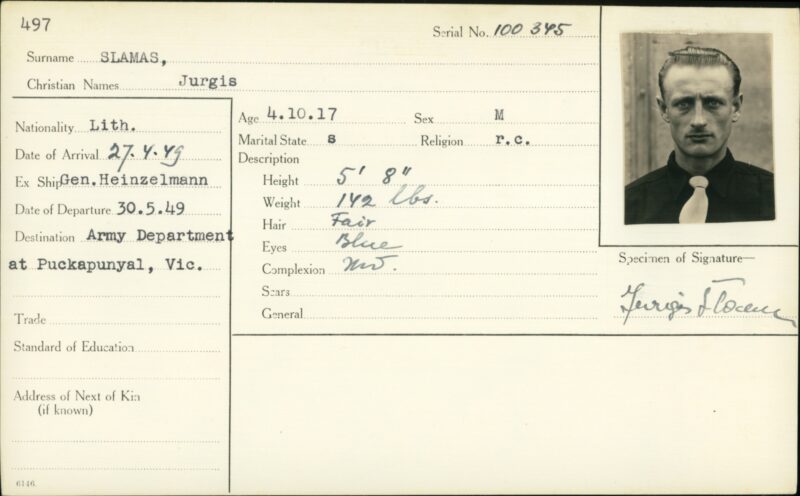 497
Serial No. 100 345
Surname SLAMAS,
Christian Names Jurgis
Nationality Lith.
Date of Arrival 27.4.49
Ex Ship Gen.Heinzelmann
Date of Departure 30.5.49
Destination Army Department
at Puckapunyal, Vic.
Trade
Standard of Education
Address of Next of Kin
(if known)
6146
Age 4.10.17 Sex M
Marital State s Religion r.c.
Description
Height 5' 8"
Weight 142 lbs.
Hair Fair
Eyes Blue
Complexion
Scars
General
Specimen of Signature—
Jurgis